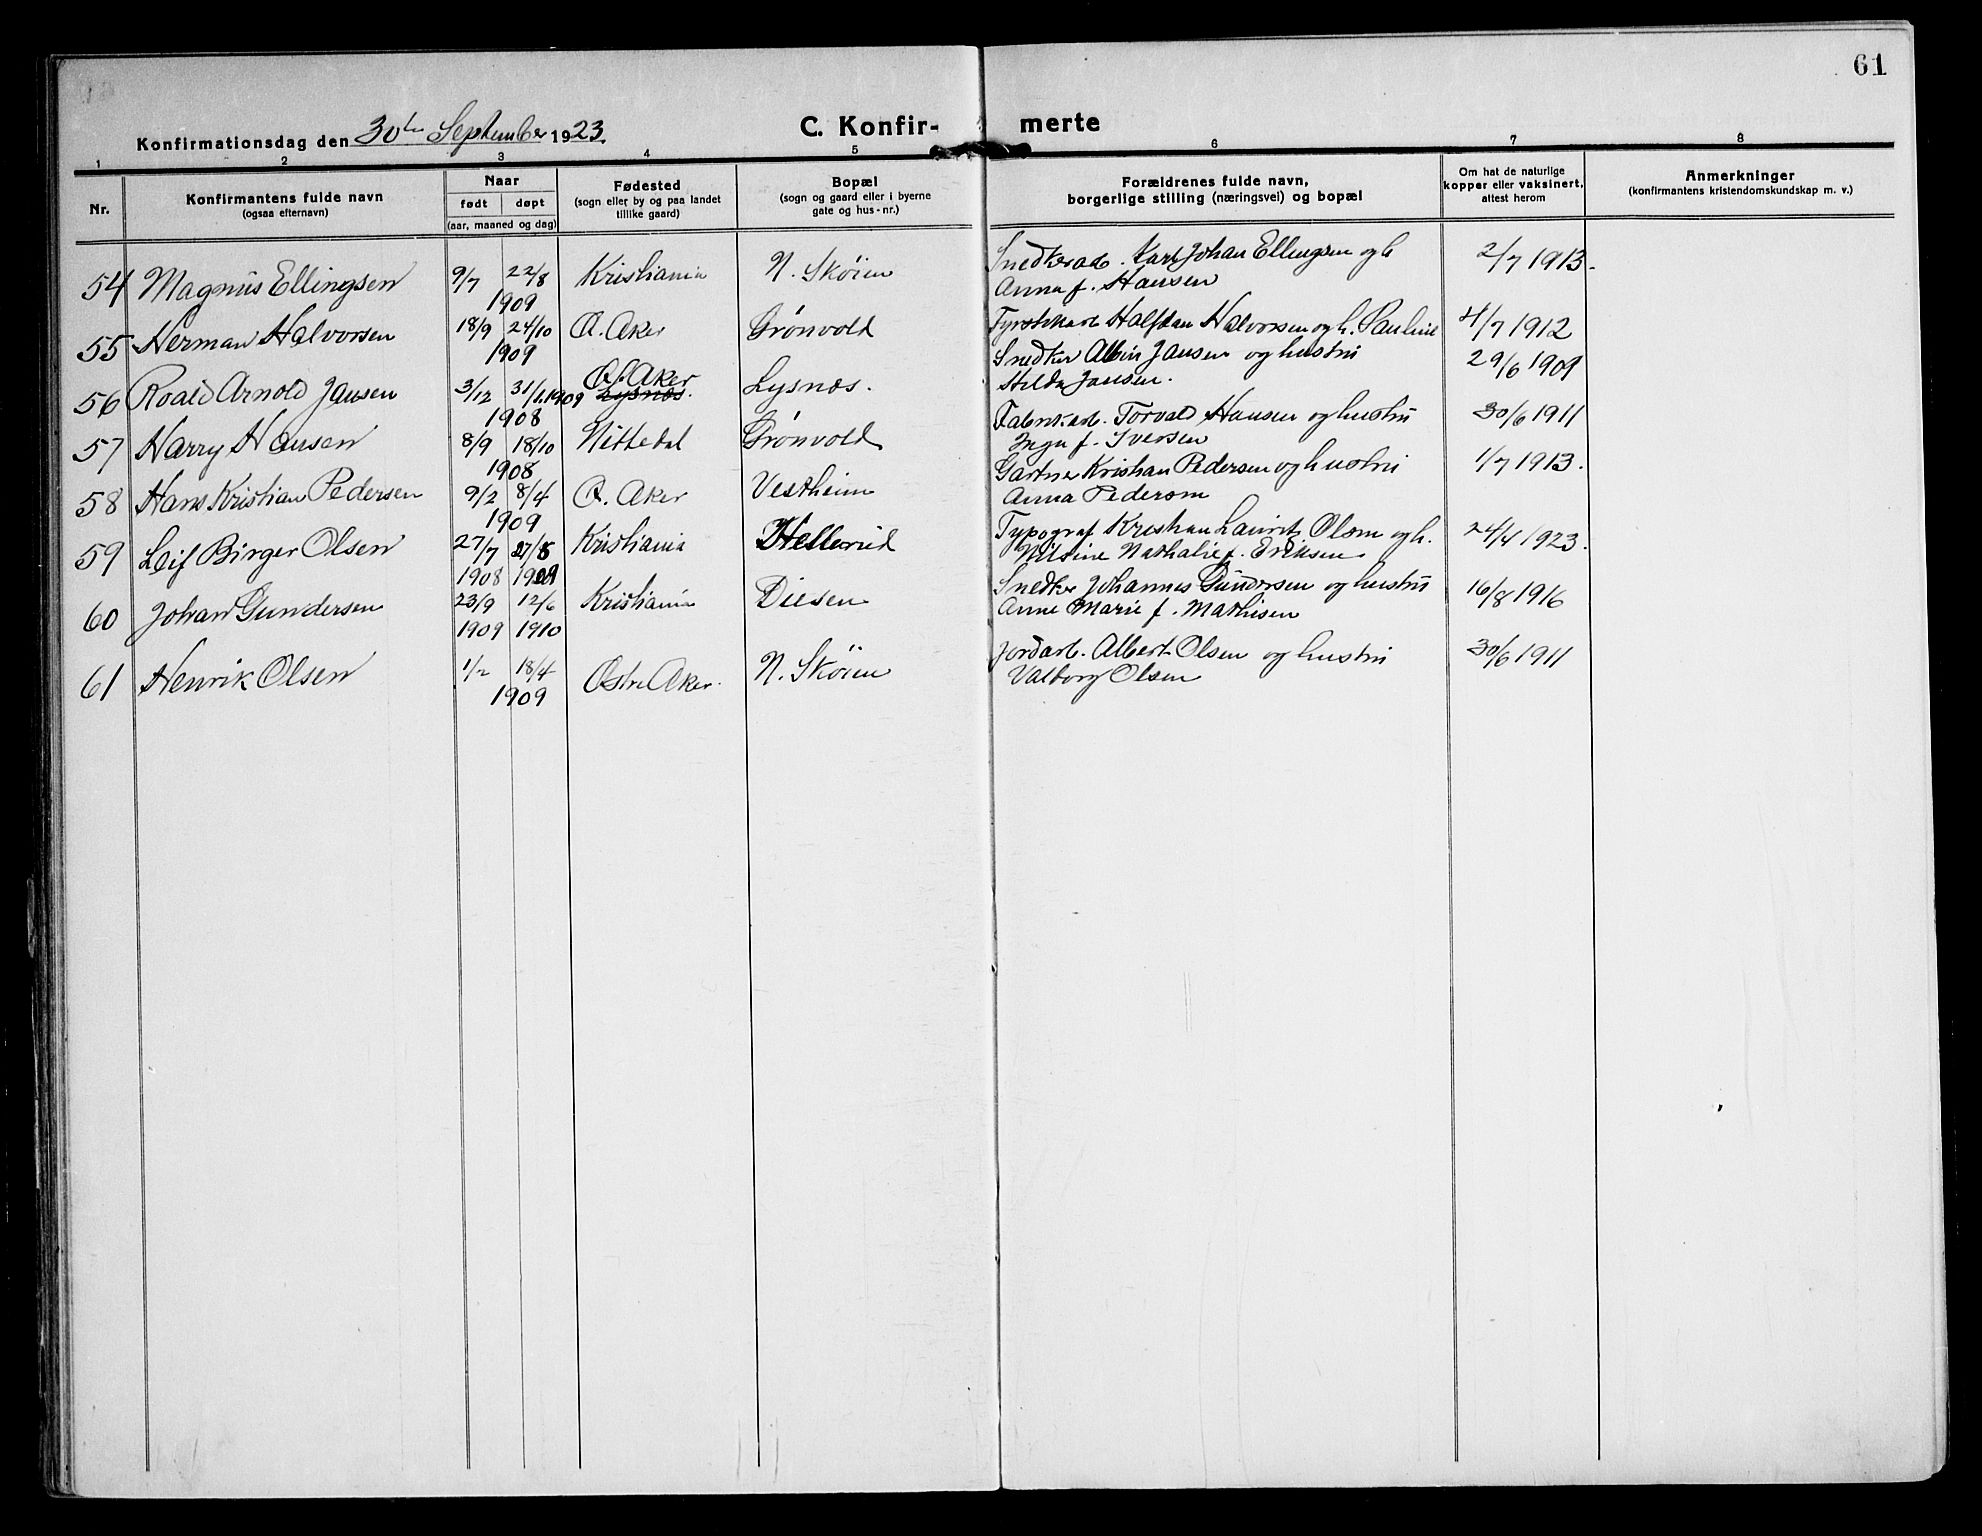 61
Konfirmationsdag den 30te September 1923.
C. Konfir- merte
1 2 3 4 5 6 7 8
Nr.
Konfirmantens fulde navn
(ogsaa efternavn)
Naar
født døpt
(aar, maaned og dag)
Fødested
(sogn eller by og paa landet
tillike gaard)
Bopæl
(sogn og gaard eller i byerne
gate og hus-nr.)
Forældrenes fulde navn,
borgerlige stilling (næringsvei) og bopæl
Om hat de naturlige
kopper eller vaksinert,
attest herom
Anmerkninger
(konfirmantens kristendomskundskap m. v.)
54 Magnus Ellingsen 9/7 22/8 Kristiania N. Skøien Snedkerarb. Karl Johan Ellingsen og h 2/7 1913.
1909 Anna f. Hansen
55 Herman Halvorsen 18/9 24/10 Ø. Aker Grønvold Halfdan Halvorsen og h. Pauline 4/7 1912
1909
56 Roald Arnold Jansen 3/12 31/1 1909 Ø. Aker Lysnæs. Lysnæs. Snedker Albin Jansen og hustru 29/6 1909
1908 Hilda Jansen.
57 Harry Hansen 8/9 18/10 Nittedal Grønvold Fabrikarb. Torvald Hansen og hustru 30/6 1911
1908 Inga f. Iversen
58 Hans Kristian Pedersen 9/2 8/4 Ø. Aker Vestheim Gartner Kristian Pedersen og hustru 1/7 1913.
1909 Anna Pedersen
59 Leif Birger Olsen 27/7 27/8 Kristiania Hellerud Typograf Kristian Lauritz Olsen og h. 24/4 1923.
1908 1909 Nilsine Nathalie f. Eriksen
60 Johan Gundersen 23/9 12/6 Kristiania Diesen Snedker Johannes Gundersen og hustru 16/8 1916
1909 1910 Anne Marie f. Mathisen
61 Henrik Olsen 1/2 18/4 Østre Aker. N. Skøien Jordarb. Albert Olsen og hustru 30/6 1911
1909 Valborg Olsen